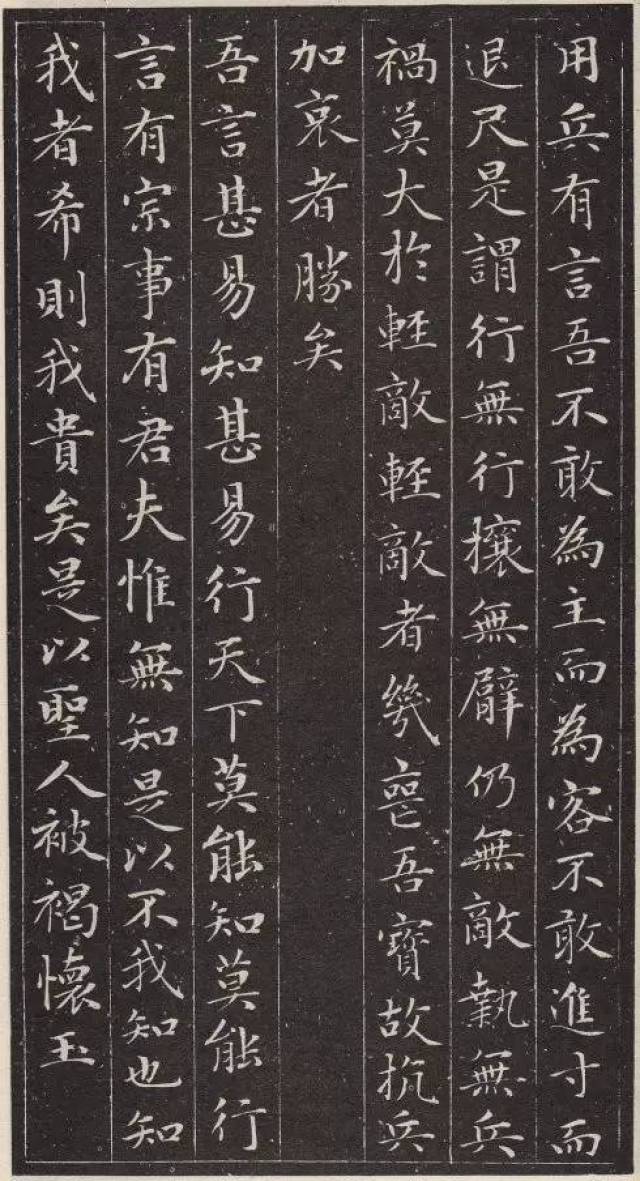 用兵有言吾不敢為主而為客不敢進寸而
退尺是謂行無行攘無臂仍無敵執無兵
禍莫大於輕敵輕敵者幾喪吾寶故抗兵
加哀者勝矣
吾言甚易知甚易行天下莫能知莫能行
言有宗事有君夫惟無知是以不我知也知
我者希則我貴矣是以聖人被褐懷玉